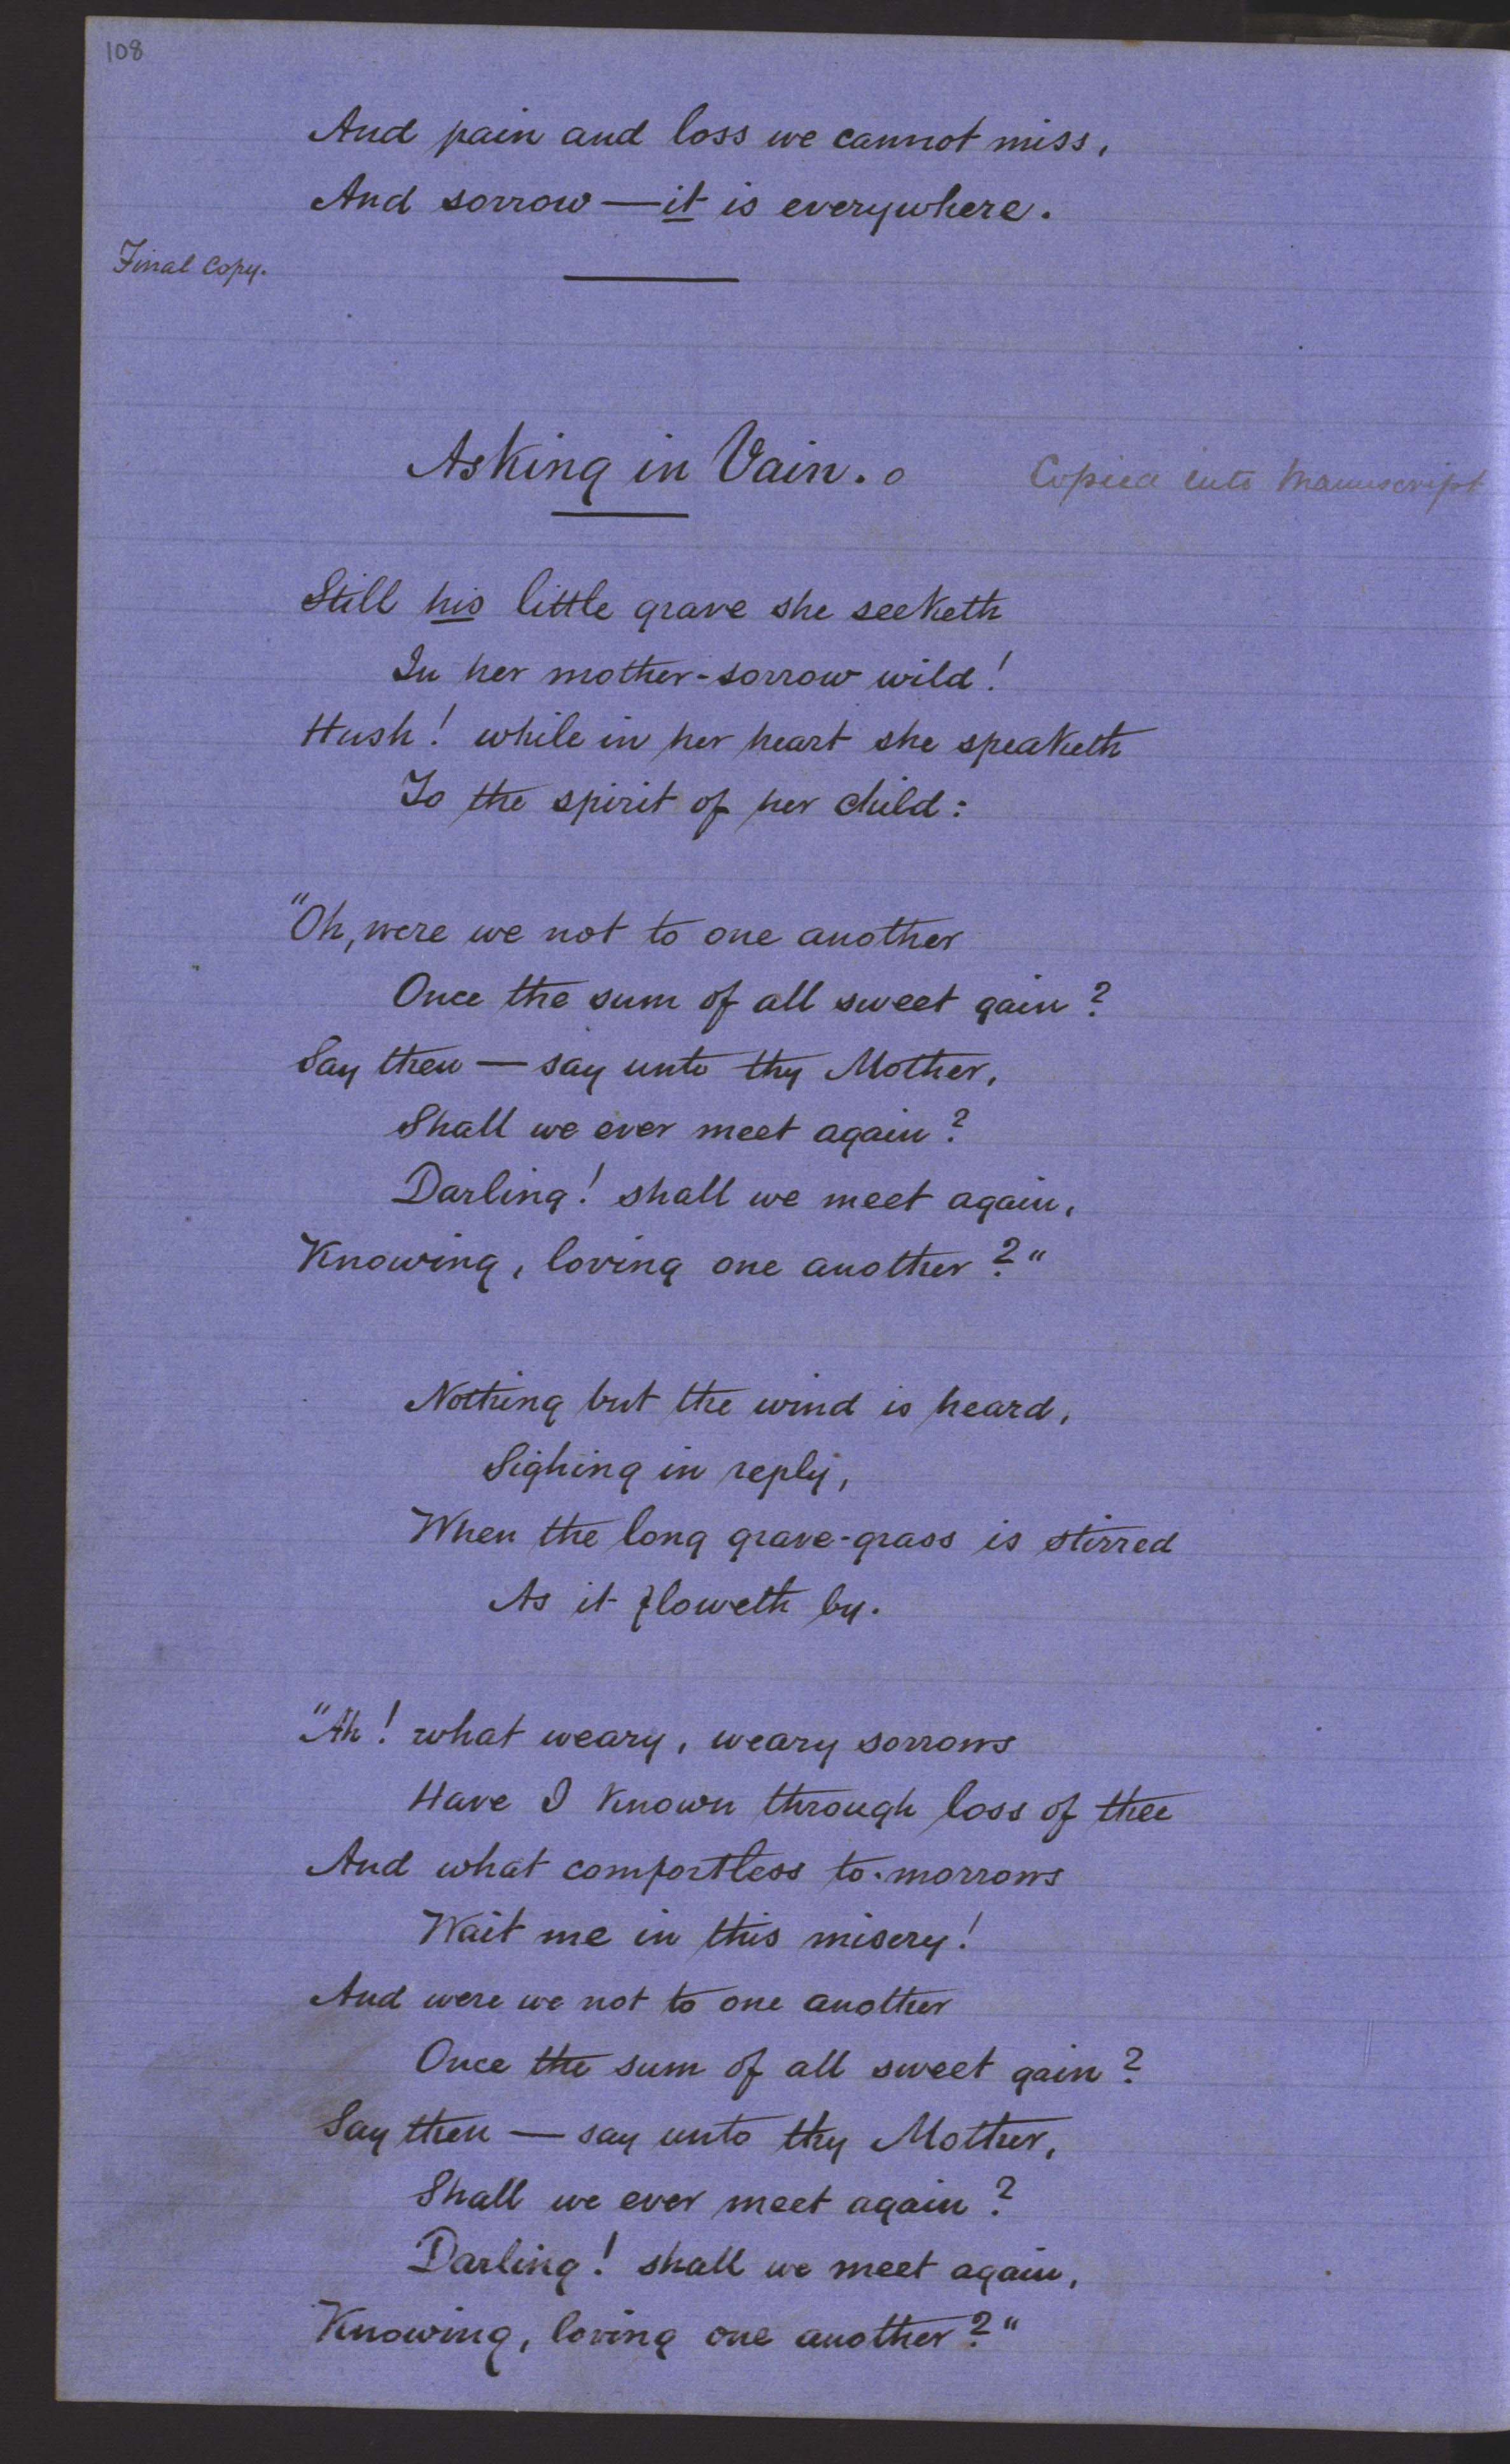 108
And pain and loss we cannot miss,
And sorrow — it is everywhere.
Final Copy.
Asking in Vain. o
Copied into Manuscript
Still his little grave she seeketh
In her mother-sorrow wild!
Hush! while in her heart she speaketh
To the spirit of her child:
"Oh, were we not to one another
Once the sum of all sweet gain?
Say then — say unto thy Mother,
Shall we ever meet again?
Darling! shall we meet again,
Knowing, loving one another?"
Nothing but the wind is heard,
Sighing in reply,
When the long grave-grass is stirred
As it floweth by.
"Ah! what weary, weary sorrows
Have I known through loss of thee
And what comfortless to-morrows
Wait me in this misery!
And were we not to one another
Once the sum of all sweet gain?
Say then — say unto thy Mother,
Shall we ever meet again?
Darling! shall we meet again,
Knowing, loving one another?"